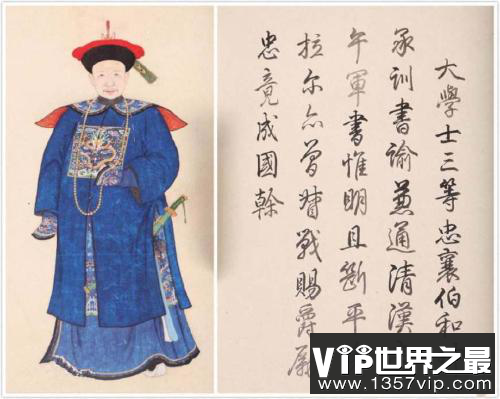 大學士三等忠襄伯和
承訓書諭兼通清漢
午軍書惟明且斷平
拉尔亦曾督戰賜爵屬
忠竟成國幹
VIP世界之最
www.1357vip.com